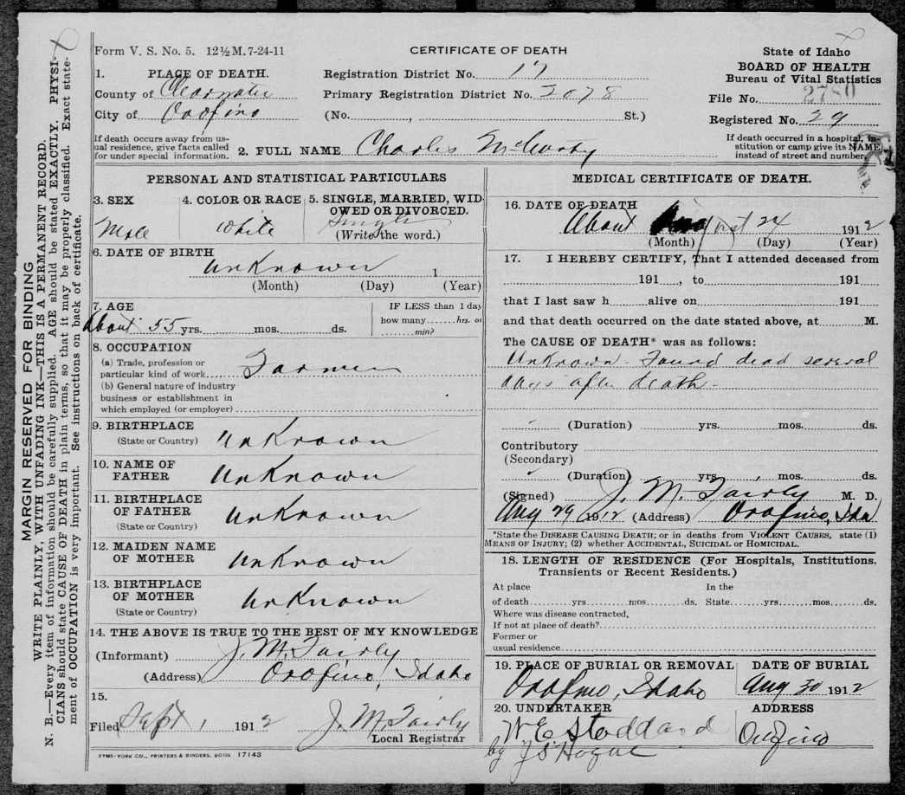 MARGIN RESERVED FOR BINDING
WRITE PLAINLY, WITH UNFADING INK—THIS IS A PERMANENT RECORD.
N. B.—Every item of information should be carefully supplied. AGE should be stated EXACTLY. PHYSI-
CIANS should state CAUSE OF DEATH in plain terms, so that it may be properly classified. Exact state-
ment of OCCUPATION is very important. See instructions on back of certificate.
Form V. S. No. 5. 12½ M. 7-24-11
CERTIFICATE OF DEATH
State of Idaho
BOARD OF HEALTH
Bureau of Vital Statistics
File No. 2780
Registered No. 29
1. PLACE OF DEATH.
County of Clearwater
City of Orofino
Registration District No. 17
Primary Registration District No. 2078
(No. , St.)
If death occurs away from us-
ual residence, give facts called
for under special information.
2. FULL NAME Charles
If death occurred in a hospital, in-
stitution or camp give its NAME
instead of street and number.
PERSONAL AND STATISTICAL PARTICULARS
3. SEX
Male
4. COLOR OR RACE
White
5. SINGLE, MARRIED, WID-
OWED OR DIVORCED.
Single
(Write the word.)
6. DATE OF BIRTH
Unknown 1
(Month) (Day) (Year)
7. AGE
About 55 yrs. mos. ds.
IF LESS than 1 day
how many hrs. or
min?
8. OCCUPATION
(a) Trade, profession or
particular kind of work Farmer
(b) General nature of industry
business or establishment in
which employed (or employer)
9. BIRTHPLACE
(State or Country) Unknown
10. NAME OF
FATHER Unknown
11. BIRTHPLACE
OF FATHER Unknown
(State or Country)
12. MAIDEN NAME
OF MOTHER Unknown
13. BIRTHPLACE
OF MOTHER Unknown
(State or Country)
14. THE ABOVE IS TRUE TO THE BEST OF MY KNOWLEDGE
(Informant) J. M. Fairly
(Address) Orofino, Idaho
15.
Filed Sept 1 1912 J. M. Fairly
Local Registrar
SYMS-YORK CO., PRINTERS & BINDERS, BOISE 17143
MEDICAL CERTIFICATE OF DEATH.
16. DATE OF DEATH
About August 24 1912
(Month) (Day) (Year)
17. I HEREBY CERTIFY, That I attended deceased from
191 , to 191
that I last saw h alive on 191
and that death occurred on the date stated above, at M.
The CAUSE OF DEATH* was as follows:
Unknown - Found dead several
days after death -
(Duration) yrs. mos. ds.
Contributory
(Secondary)
(Duration) yrs. mos. ds.
(Signed) J. M. Fairly M. D.
Aug 29 1912 (Address) Orofino, Ida
*State the DISEASE CAUSING DEATH; or in deaths from VIOLENT CAUSES, state (1)
MEANS OF INJURY; (2) whether ACCIDENTAL, SUICIDAL or HOMICIDAL.
18. LENGTH OF RESIDENCE (For Hospitals, Institutions.
Transients or Recent Residents.)
At place In the
of death yrs. mos. ds. State yrs. mos. ds.
Where was disease contracted,
If not at place of death?
Former or
usual residence
19. PLACE OF BURIAL OR REMOVAL
Orofino, Idaho
DATE OF BURIAL
Aug 30 1912
20. UNDERTAKER
W E Stoddard
by J S Hogue
ADDRESS
Orofino